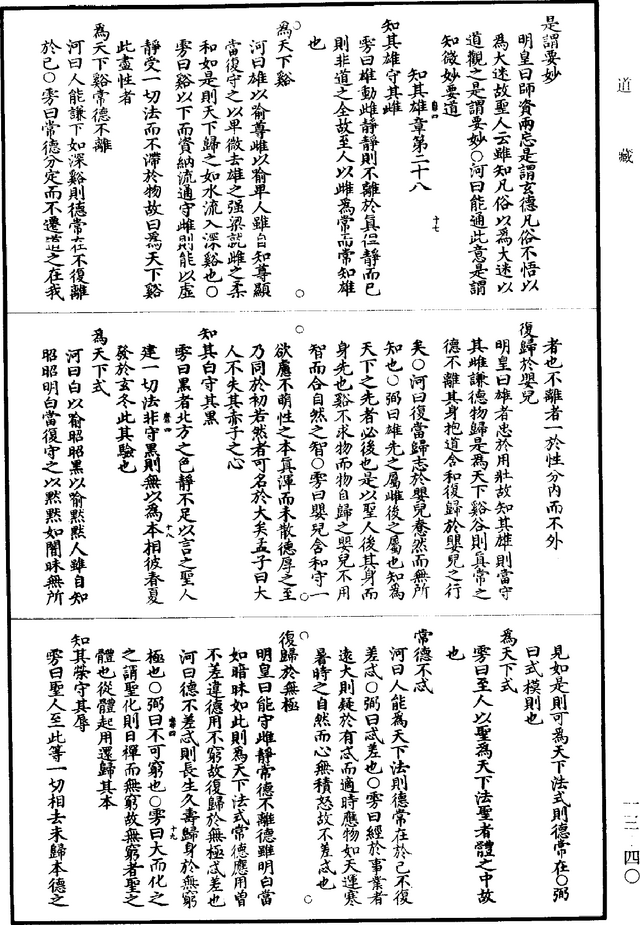 道藏
是謂要妙
明皇曰師資兩忘是謂玄德凡俗不悟以
為大迷故聖人云雖知凡俗以為大迷以
道觀之是謂要妙○河曰能通此意是謂
知微妙要道
知其雄章第二十八
十七
知其雄守其雌
雱曰雄動雌靜靜則不離於真但靜而已
則非道之全故至人以雌為常而常知雄
也
為天下谿
河曰雄以喻尊雌以喻卑人雖自知尊顯
當復守之以卑微去雄之强梁就雌之柔
和如是則天下歸之如水流入深谿也○
雱曰谿以下而資納流通守雌則能以虛
靜受一切法而不滯於物故曰為天下谿
此盡性者
為天下谿常德不離
河曰人能謙下如深谿則德常在不復離
於已○雱曰常德分定而不遷道之在我
者也不離者一於性分內而不外
復歸於嬰兒
明皇曰雄者患於用壯故知其雄則當守
其雌謙德物歸是為天下谿谷則真常之
德不離其身抱道含和復歸於嬰兒之行
矣○河曰復當歸志於嬰兒惷然而無所
知也○弼曰雄先之屬雌後之屬也知為
天下之先者必後也是以聖人後其身而
身先也谿不求物而物自歸之嬰兒不用
智而合自然之智○雱曰嬰兒含和守一
欲慮不萌性之本真渾而未散德厚之至
乃同於初若然者可名於大矣孟子曰大
人不失其赤子之心
知其白守其黑
雱曰黑者北方之色靜不足以言之聖人
建一切法非守黑則無以為本相彼春夏
十八
發於玄冬此其驗也
為天下式
河曰白以喻昭昭黑以喻默默人雖自知
昭昭明白當復守之以默默如闇昧無所
見如是則可為天下法式則德常在○弼
曰式模則也
為天下式
雱曰至人以聖為天下法聖者體之中故
也
常德不忒
河曰人能為天下法則德常在於己不復
差忒○弼曰忒差也○雱曰經於事業者
遠大則疑於有忒而適時應物如天運寒
暑時之自然而心無積怒故不差忒也
復歸於無極
明皇曰能守雌靜常德不離德雖明白當
如暗昧如此則為天下法式常德應用曾
不差違德用不窮故復歸於無極忒差也
河曰德不差忒則長生久壽歸身於無窮
十九
極也○弼曰不可窮也○雱曰大而化之
之謂聖化則日禪而無窮故無窮者聖之
體也從體起用還歸其本
知其榮守其辱
雱曰聖人至此等一切相去未歸本德之
一三·四〇